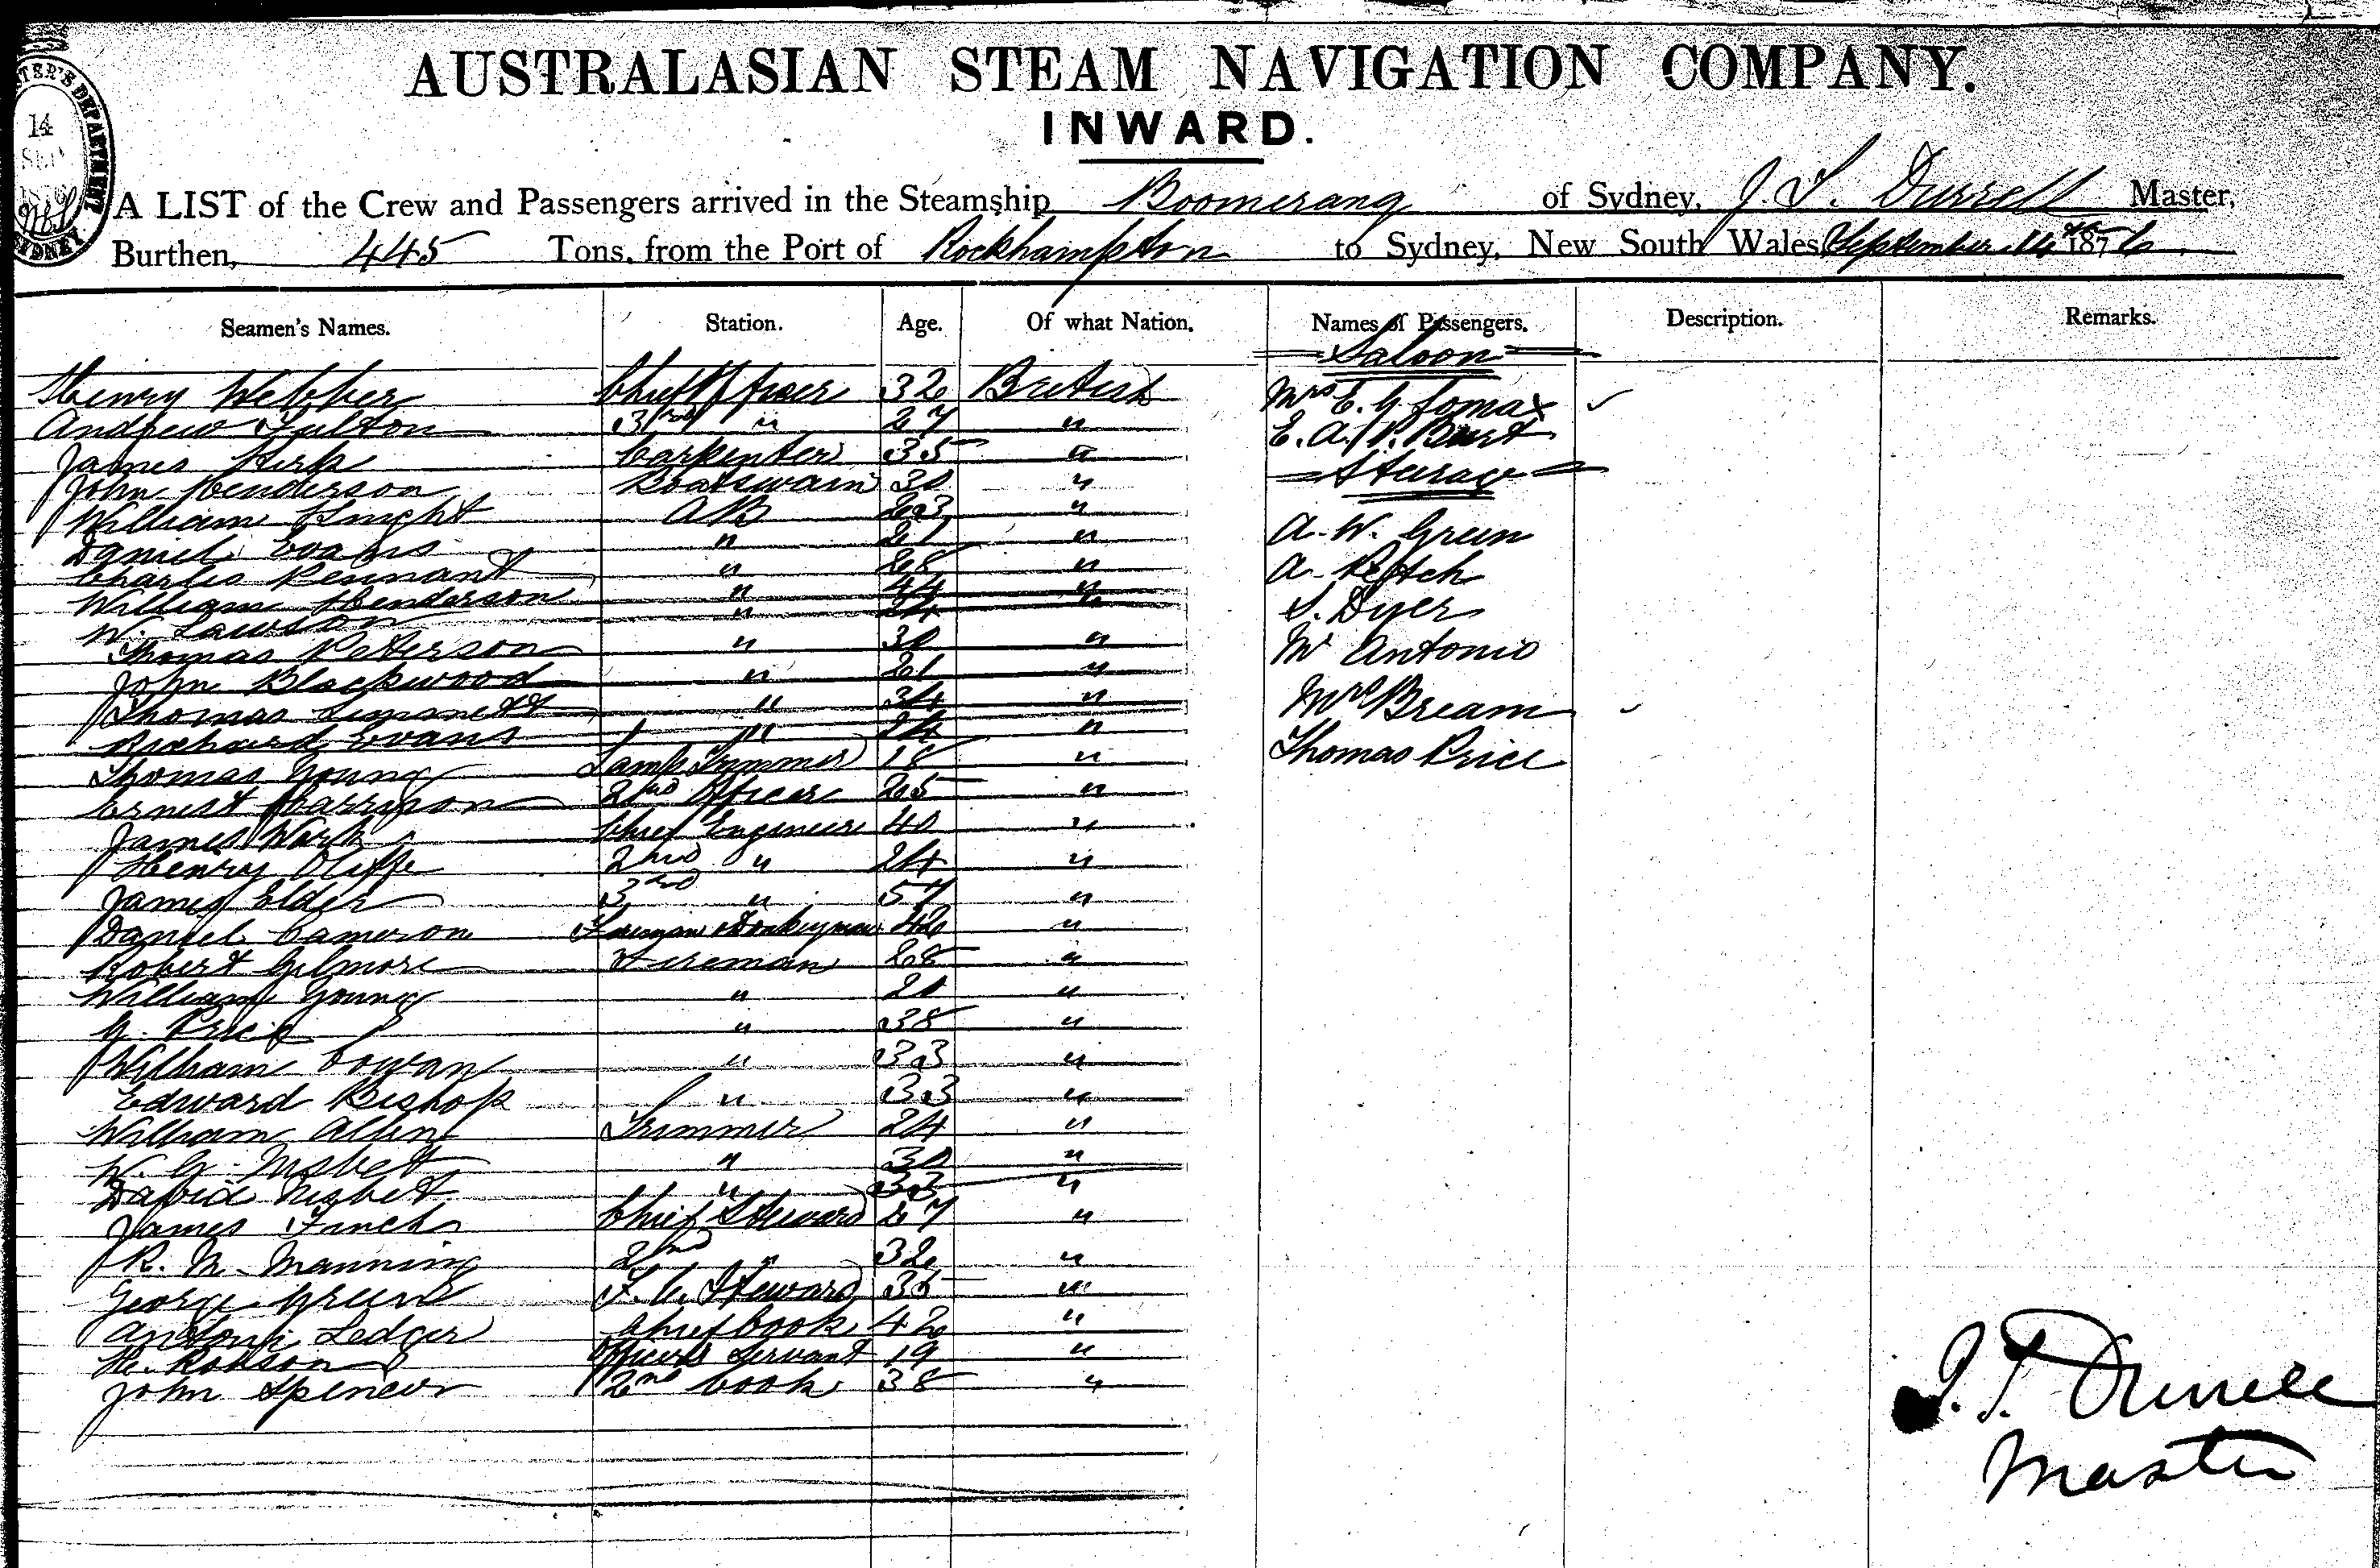 AUSTRALASIAN STEAM NAVIGATION COMPANY.
INWARD.
14
SEP
1876
SYDNEY
A LIST of the Crew and Passengers arrived in the Steamship Boomerang of Sydney, J. T. Durrell Master,
Burthen, 445 Tons, from the Port of Rockhampton to Sydney, New South Wales September 14th 1876
Seamen's Names. Station. Age. Of what Nation. Names of Passengers. Description. Remarks.
Saloon
Henry Webber Chief Officer 32 British Mrs E. G. Lomax ✓
Andrew Fulton 3rd " 27 " E. A. P. Burt
James Kirk Carpenter 35 " Steerage
John Henderson Boatswain 30 "
William Knight AB 23 " A. W. Green
Daniel Evans " 21 "
Charles Pennant " 28 " A.
William Henderson " 44 "
W. Lawson " 24 " S. Dyer
Thomas Peterson " 30 " Mr Antonio
John Blackwood " 21 "
Thomas " 34 " Mrs Bream ✓
Richard Evans " 24 "
Thomas Young Lamp Trimmer 18 " Thomas Price
Ernest Harrison 2nd Officer 25 "
James Wark Chief Engineer 40 "
Henry Oliffe 2nd " 24 "
James Elder 3rd " 57 "
Daniel Cameron Fireman & Donkeyman 42 "
Robert Gilmore Fireman 28 "
William Young " 20 "
G. Price " 38 "
William Cowan " 33 "
Edward Bishop " 33 "
William Allen Trimmer 24 "
W. G. Nisbet " 30 "
David Nisbet " 33 "
James Finch Chief Steward 27 "
R. M. Manning 2nd " 32 "
George Green F. C. Steward 36 "
Antoni Ledger Chief Cook 42 "
H. Robson Officers Servant 19 "
John Spencer 2nd Cook 38 "
J. T. Durrell
Master